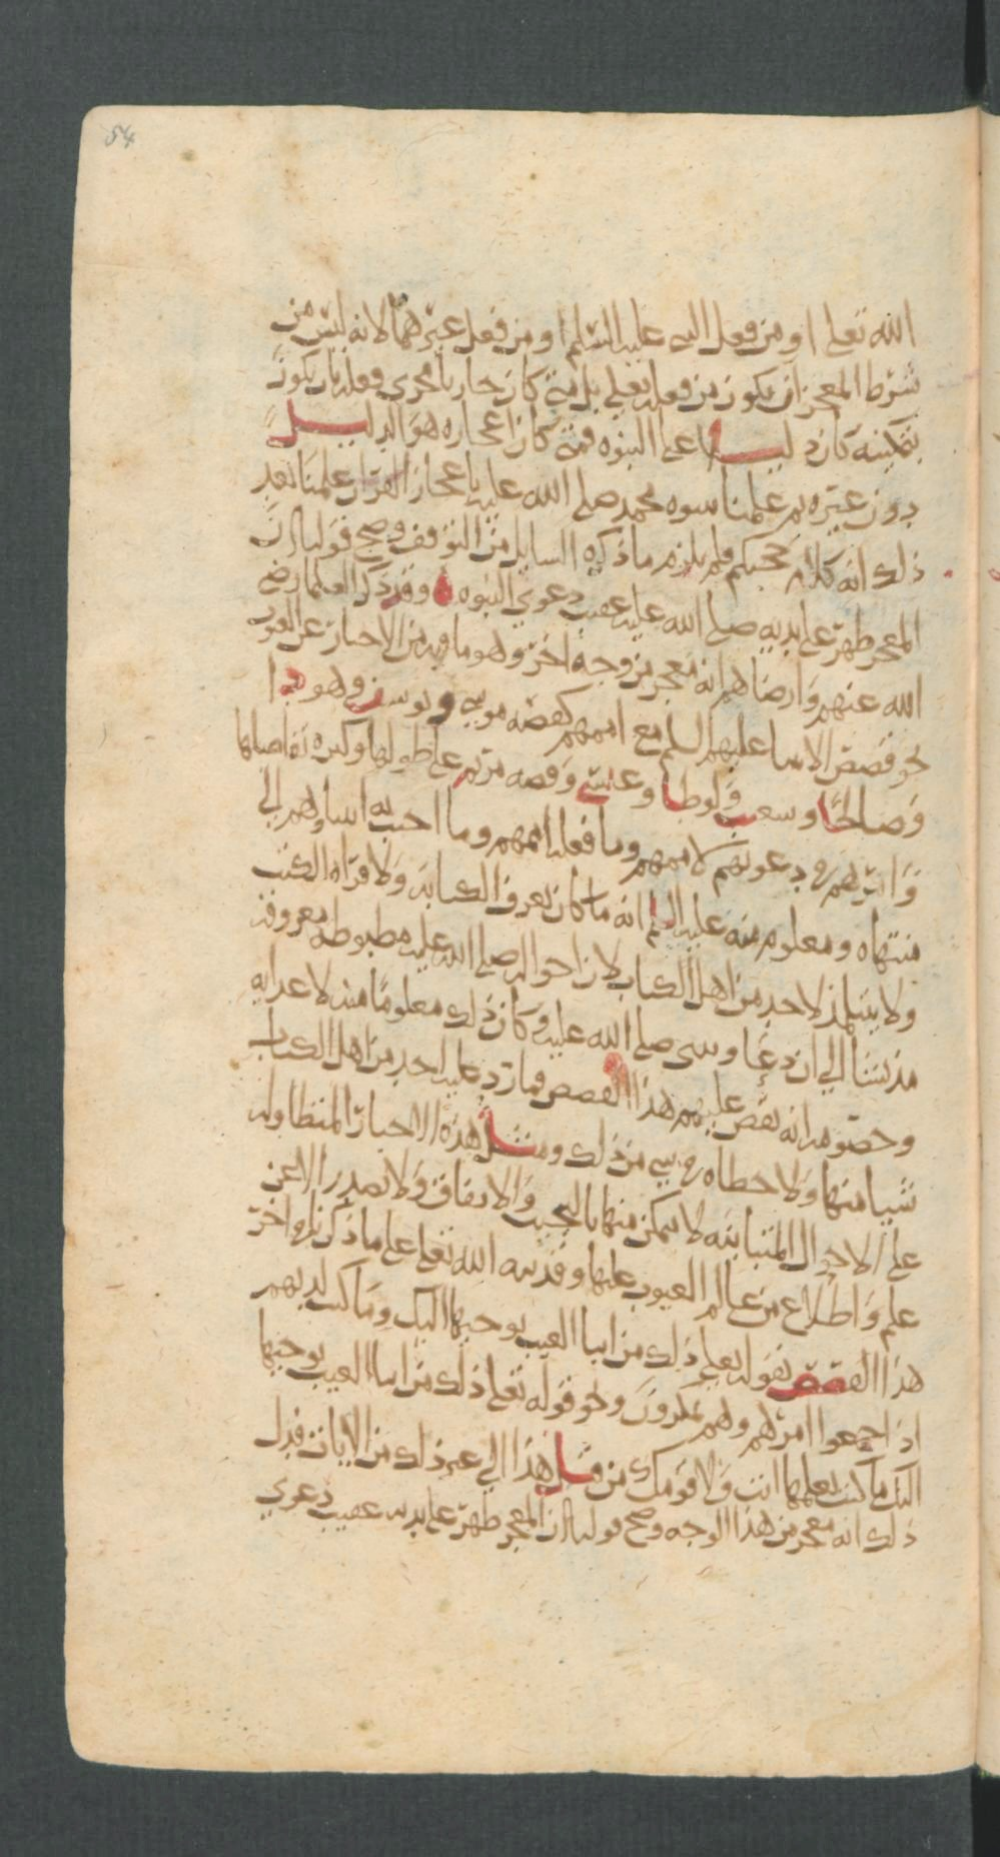 54
الله تعلى او من فعل النبى عليه السلم او من فعل غيرهما لانه ليس من
شرط المعجز ان يكون من فعله تعلى بل متى كان جاريا مجرى فعله بان يكون
بتمكينه كان دليلا على النبوه فمتى كان اعجازه هو الدليل
دون غيره ثم علمنا نبوه محمد صلى الله عليه باعجاز القران علمنا بعد
ذلك انه كلام حكيم فلم يلزم ما ذكره السايل من التوقف وصح قولنا ان
المعجز ظهر على يديه صلى الله عليه عقيب دعوى النبوه وقد ذكر العلما رضى
الله عنهم وارضاهم انه معجز من وجه اخر وهو ما فيه من الاخبار عن الغيوب
نحو قصص الانبيا عليهم السلم مع اممهم كقصه موسى ويوسف وهودا
وصالحا وشعيب ولوطا وعيسى وقصه مريم على طولها وكثره تفاصيلها
وا دعوتهم لاممهم وما فعل اممهم وما اجيب به انبياوهم الى
منتهاه ومعلوم منه عليه السلم انه ما كان يعرف الكتابه ولا قراه الكتب
ولا يتلمذ لاحد من اهل الكتاب لان احواله صلى الله عليه مضبوطه معروفه
مذ نشا الى ان دعا وسى صلى الله عليه وكان ذلك معلوما منه لاعدايه
وخصومه انه يقص عليهم هذا القصص فما رد عليه احد من اهل الكتاب
شيا منها ولا خطاه فى شى من ذلك ومثل هذه الاخبار المتطاوله
على الاحوال المتباينه لا يمكن منها بالتبخيت والاتفاق ولا يصدر الا عن
علم واطلاع من عالم الغيوب عليها وقد نبه الله تعلى على ما ذكرناه اخر
هذا القصص بقوله تعلى ذلك من انبا الغيب نوحيها اليك وما كنت لديهم
اذ اجمعوا امرهم وهم يمكرون ونحو قوله تعلى ذلك من انبا الغيب نوحيها
اليك ما كنت تعلمها انت ولا قومك من قبل هذا الى غير ذلك من الايات فدل
ذلك انه معجز من هذا الوجه وصح قولنا ان المعجز ظهر على يديه عقيب دعوى